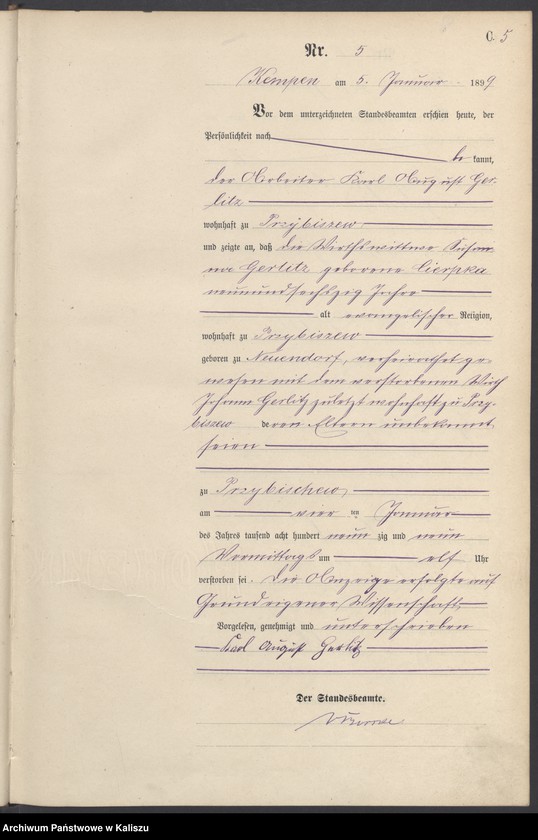 C. 5
Nr. 5
Kempen am 5. Januar 1899
Vor dem unterzeichneten Standesbeamten erschien heute, der
Persönlichkeit nach
be kannt,
der Arbeiter Karl August Ger-
litz
wohnhaft zu Przybiszew
und zeigte an, daß die Wirthswittwe Susan-
na Gerlitz geborene Cierpka
neunundsechszig Jahre
alt evangelischer Religion,
wohnhaft zu Przybiszew
geboren zu Neuendorf, verheirathet ge-
wesen mit dem verstorbenen Wirth
Johann Gerlitz zuletzt wohnhaft zu Przy-
biszew deren Eltern unbekannt
seien
zu Przybischew
am vier ten Januar
des Jahres tausend acht hundert neun zig und neun
Vormittags um elf Uhr
verstorben sei. Die Anzeige erfolgte auf
Grund eigener Wissenschaft
Vorgelesen, genehmigt und unterschrieben
Karl August Gerlitz
Der Standesbeamte.
Archiwum Państwowe w Kaliszu